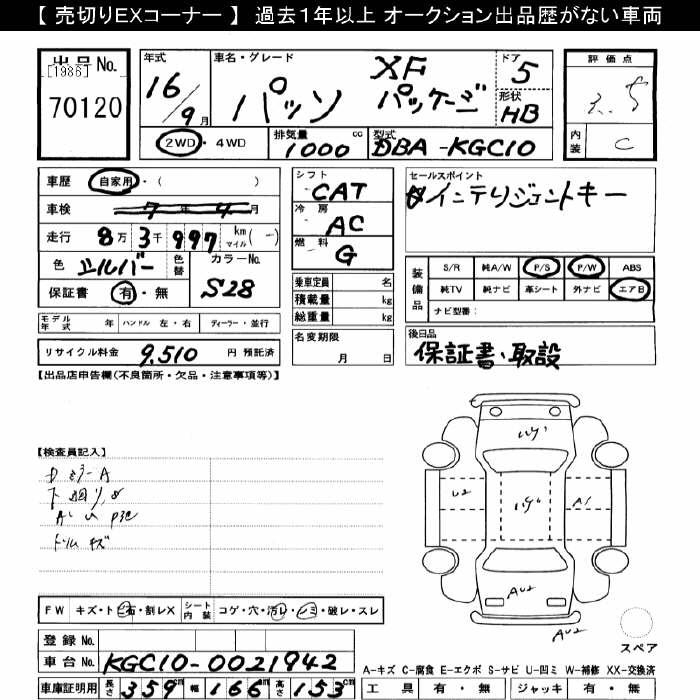 【 売切りEXコーナー 】 過去1年以上 オークション出品歴がない車両
出品No.
[1986]
70120
年式
16/9月
車名・グレード
パッソ XF パッケージ
ドア
5
形状
HB
2WD・4WD
排気量
1000 cc
型式
DBA-KGC10
評価点
3.5
内装
C
車歴 自家用・( )
車検 7年4月
走行 8万3千997 km マイル (-)
色 シルバー
色替
カラーNo.
S28
保証書 有・無
モデル年式 年 ハンドル 左・右 ディーラー・並行
リサイクル料金 9,510 円 預託済
シフト
CAT
冷房
AC
燃料
G
乗車定員 名
積載量 kg
総重量 kg
名変期限
月 日
セールスポイント
インテリジェントキー
装備品
S/R 純A/W P/S P/W ABS
純TV 純ナビ 革シート 外ナビ エアB
ナビ型番:
後日品
保証書、取設
【出品店申告欄(不良箇所・欠品・注意事項等)】
【検査員記入】
DミラーA
FW キズ・トビ石・割レX シート内装 コゲ・穴・汚レ・シミ・破レ・スレ
U2
A1
AU2
AU2
スペア
登録No.
車台No. KGC10-0021942
車庫証明用 長さ 359cm 幅 166cm 高さ 153cm
A-キズ C-腐食 E-エクボ S-サビ U-凹ミ W-補修 XX-交換済
工具 有・無 ジャッキ 有・無